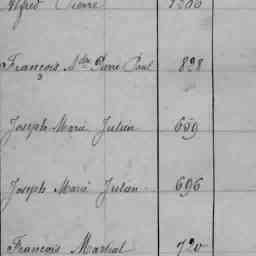 Alfred Pierre
François Mdre Pierre Paul 828
Joseph Marie Julien 659
Joseph Marie Julien 696
François Martial 720